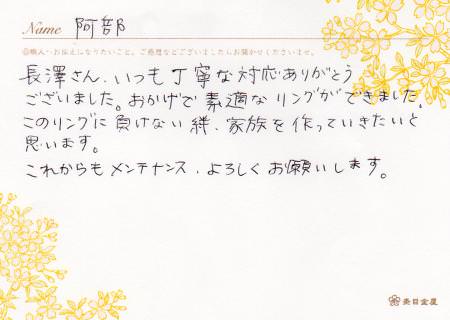 Name 阿部
◎職人・お伝えになりたいこと。ご感想などございましたらお聞かせくださいませ。
長澤さん、いつも丁寧な対応ありがとう
ございました。おかげで素適なリングができました。
このリングに負けない絆、家族を作っていきたいと
思います。
これからもメンテナンス、よろしくお願いします。
杢目金屋